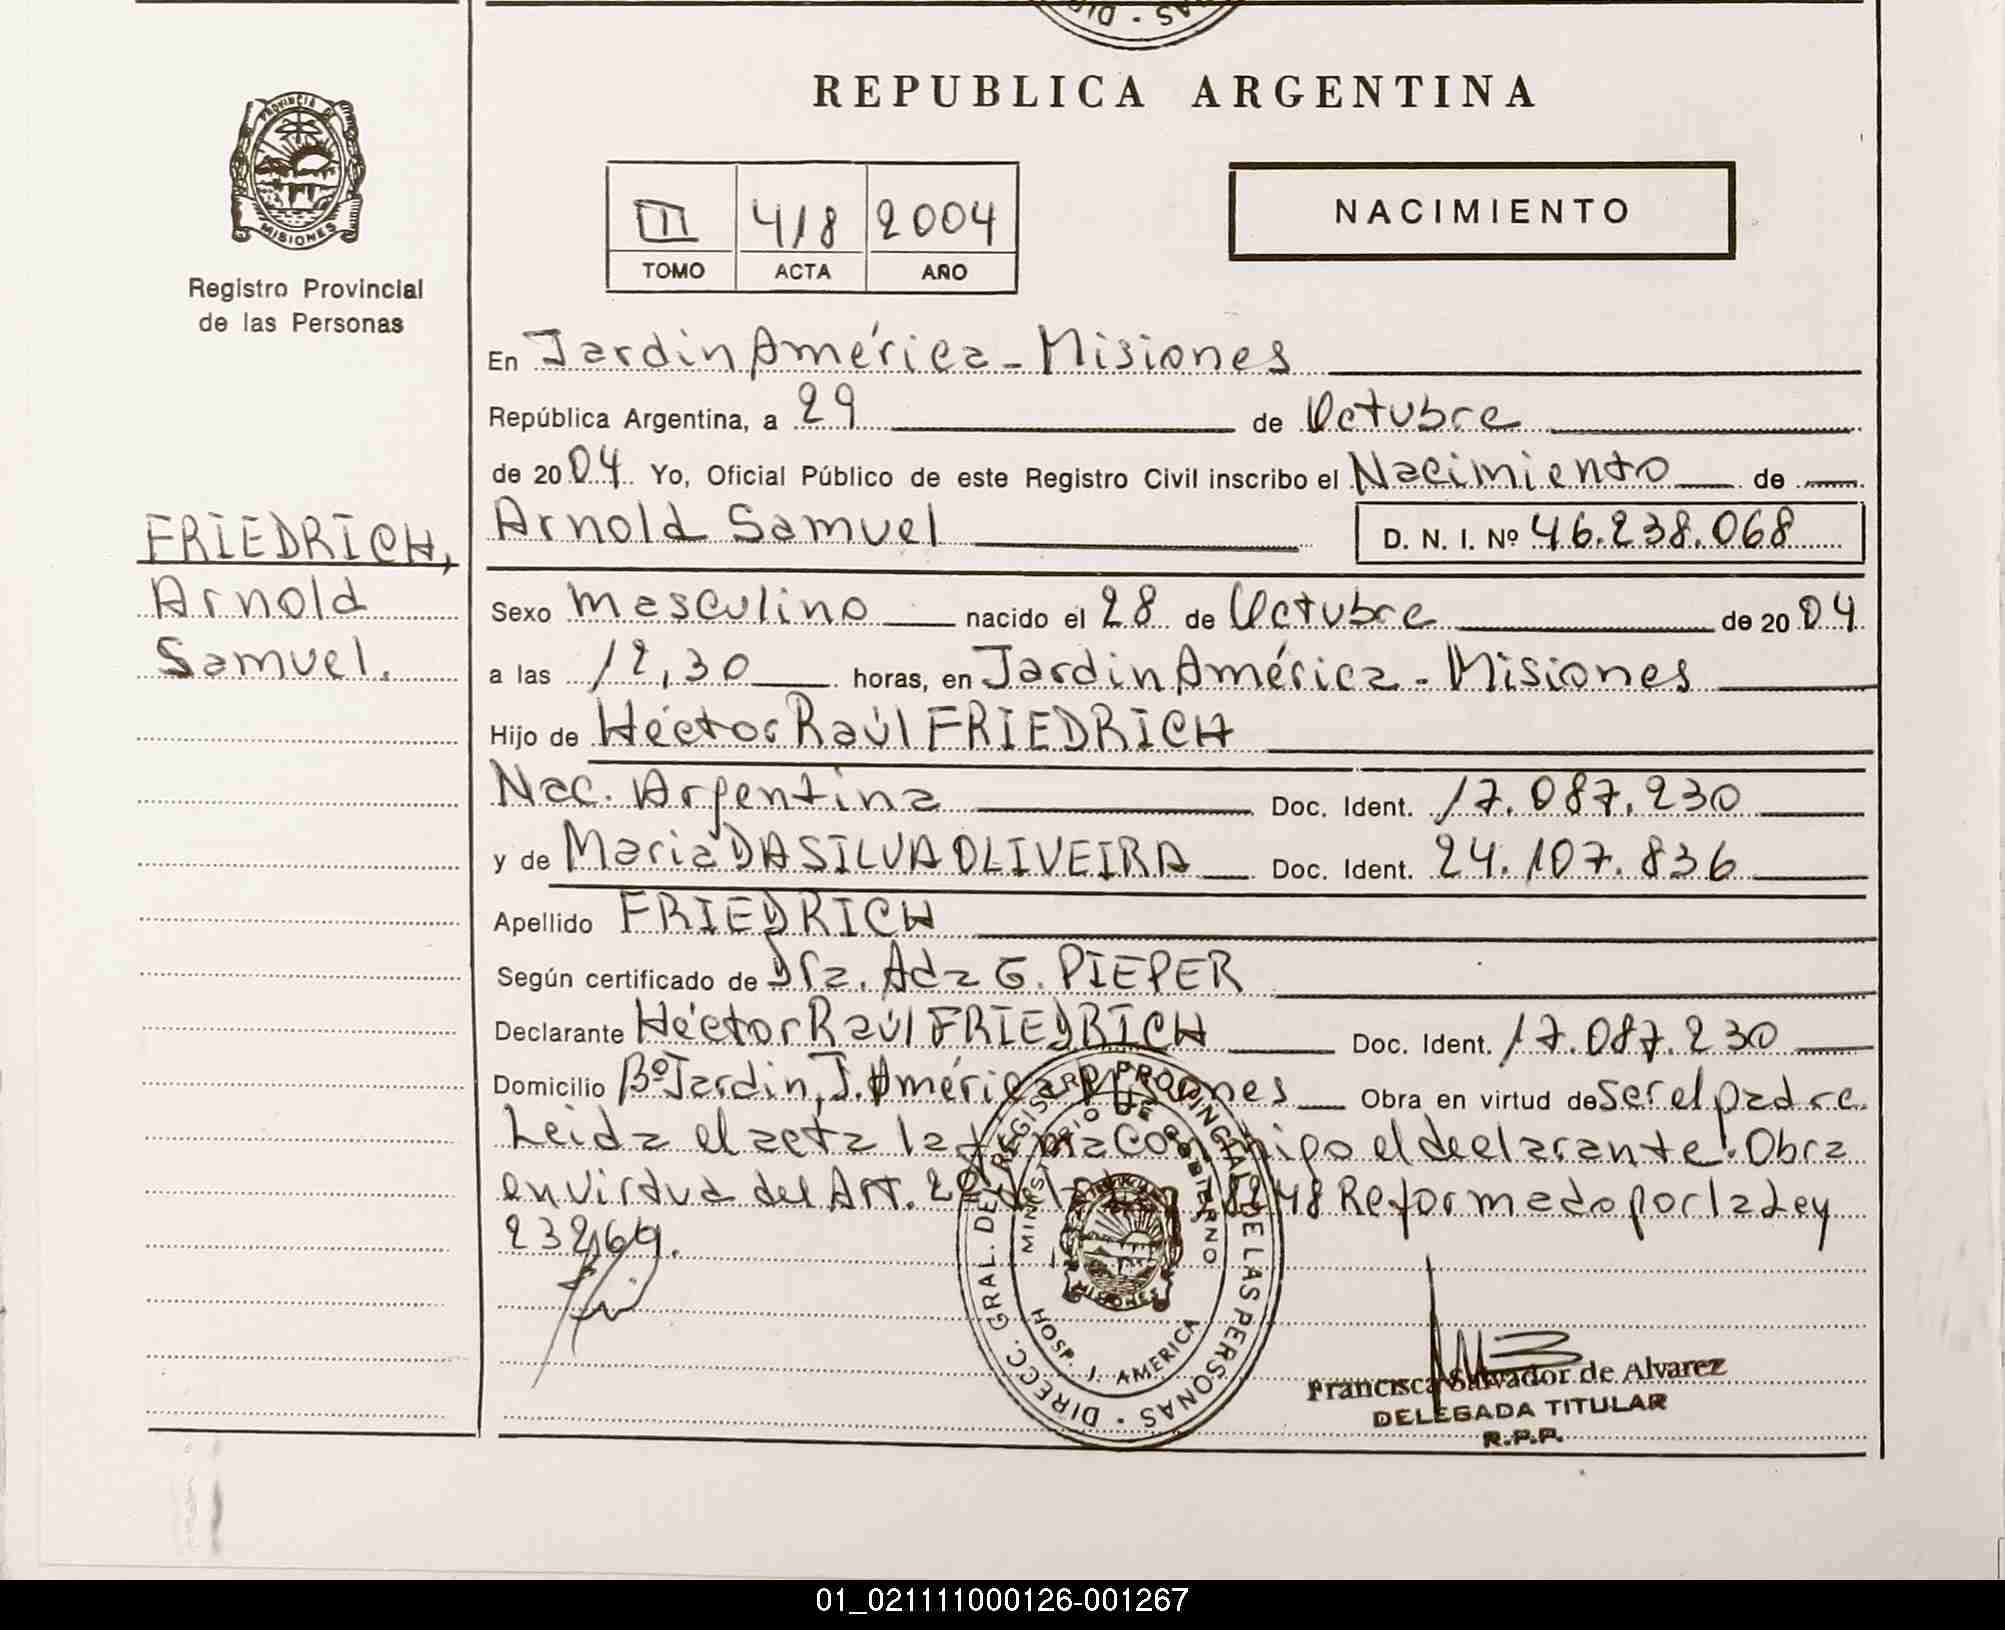 DIR · SAN
REPUBLICA ARGENTINA
PROVINCIA DE
MISIONES
Registro Provincial
de las Personas
II 418 2004
TOMO ACTA AÑO
NACIMIENTO
En Jardin América - Misiones
República Argentina, a 29 de Octubre
de 2004. Yo, Oficial Público de este Registro Civil inscribo el Nacimiento de
FRIEDRICH,
Arnold
Samuel.
Arnold Samuel D. N. I. Nº 46.238.068
Sexo masculino nacido el 28 de Octubre de 2004
a las 12,30 horas, en Jardin América - Misiones
Hijo de Héctor Raúl FRIEDRICH
Nac. Argentina Doc. Ident. 17.087.230
y de Maria DA SILVA OLIVEIRA Doc. Ident. 24.107.836
Apellido FRIEDRICH
Según certificado de Dra. Ada G. PIEPER
Declarante Héctor Raúl FRIEDRICH Doc. Ident. 17.087.230
Domicilio Bº Jardin, J. América Misiones Obra en virtud de ser el padre.
Leida el acta la firma conmigo el declarante. Obra
en virtud del Art. 29 de la Ley 18248 Reformado por la Ley
23264.
DIRECC. GRAL. DEL REGISTRO PROVINCIAL DE LAS PERSONAS
MINISTERIO DE GOBIERNO
MISIONES
HOSP. J. AMERICA
Francisca Salvador de Alvarez
DELEGADA TITULAR
R.P.P.
01_021111000126-001267